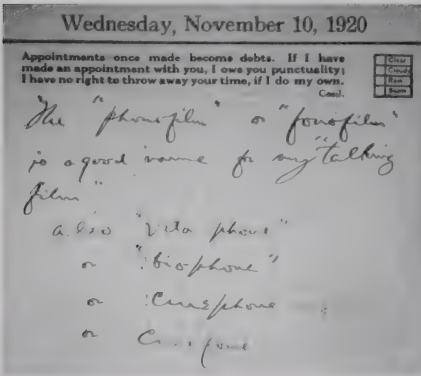 Wednesday, November 10, 1920
Appointments once made become debts. If I have
made an appointment with you, I owe you punctuality;
I have no right to throw away your time, if I do my own.
Cecil.
Clear
Cloudy
Rain
Snow
The "phonofilm" or "fonofilm"
is a good name for my "talking
film"
also "Vita phone"
or "biophone"
or Cinephone
or